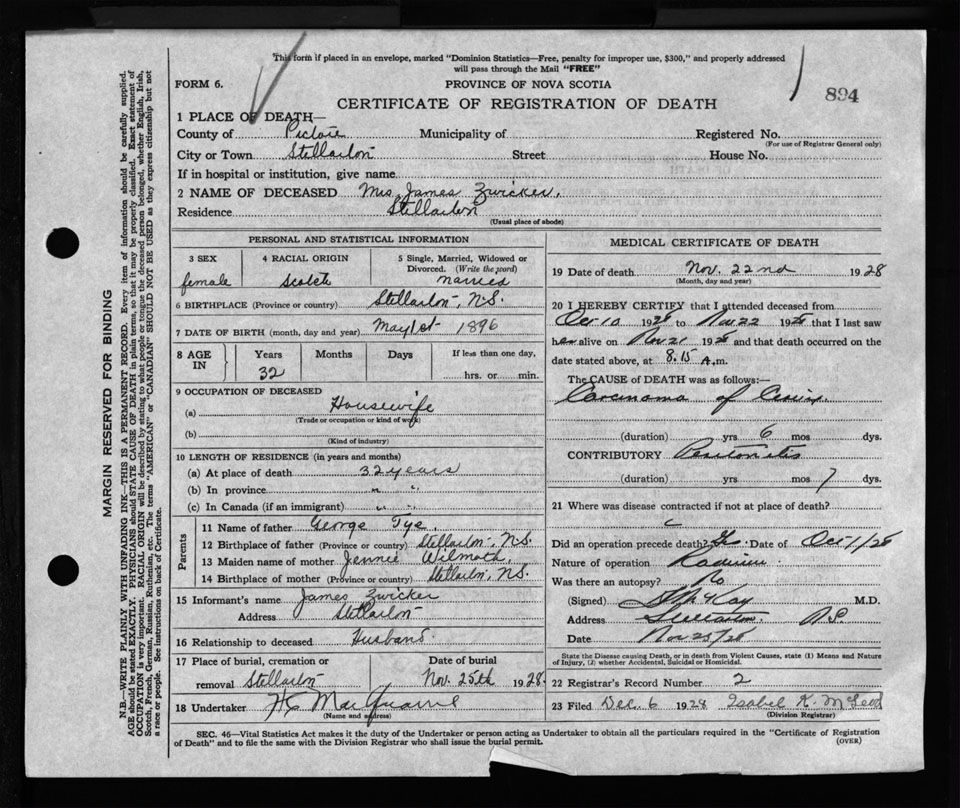 This form if placed in an envelope, marked "Dominion Statistics—Free, penalty for improper use, $300," and properly addressed
will pass through the Mail "FREE"
FORM 6.
PROVINCE OF NOVA SCOTIA
894
CERTIFICATE OF REGISTRATION OF DEATH
1 PLACE OF DEATH—
County of Pictou Municipality of Registered No.
(For use of Registrar General only)
City or Town Stellarton Street House No.
If in hospital or institution, give name
2 NAME OF DECEASED Mrs James Zwicker,
Residence Stellarton
(Usual place of abode)
PERSONAL AND STATISTICAL INFORMATION
3 SEX 4 RACIAL ORIGIN 5 Single, Married, Widowed or
Divorced. (Write the word)
female Scotch married
6 BIRTHPLACE (Province or country) Stellarton, N.S.
7 DATE OF BIRTH (month, day and year) May 1st 1896
8 AGE IN Years Months Days If less than one day,
32 hrs. or min.
9 OCCUPATION OF DECEASED
(a) Housewife
(Trade or occupation or kind of work)
(b)
(Kind of industry)
10 LENGTH OF RESIDENCE (in years and months)
(a) At place of death 32 years
(b) In province " "
(c) In Canada (if an immigrant) " "
Parents
11 Name of father George Tye.
12 Birthplace of father (Province or country) Stellarton, N.S.
13 Maiden name of mother Jennie Wilmoth,
14 Birthplace of mother (Province or country) Stellarton, N.S.
15 Informant's name James Zwicker
Address Stellarton
16 Relationship to deceased Husband.
17 Place of burial, cremation or Date of burial
removal Stellarton Nov. 25th 1928
18 Undertaker
(Name and address)
MEDICAL CERTIFICATE OF DEATH
19 Date of death Nov. 22nd 1928
(Month, day and year)
20 I HEREBY CERTIFY that I attended deceased from
Oct 10 1928 to Nov 22 1928 that I last saw
her alive on Nov 21 1928 and that death occurred on the
date stated above, at 8.15 A.m.
The CAUSE of DEATH was as follows:—
Carcinoma of Cervix.
(duration) yrs 6 mos dys.
CONTRIBUTORY Peritonitis
(duration) yrs mos 7 dys.
21 Where was disease contracted if not at place of death?
Did an operation precede death? Yes. Date of Oct 1/28
Nature of operation Radium.
Was there an autopsy? No
(Signed) M.D.
Address Stellarton N.S.
Date Nov 25/28
State the Disease causing Death, or in death from Violent Causes, state (1) Means and Nature
of Injury, (2) whether Accidental, Suicidal or Homicidal.
22 Registrar's Record Number 2
23 Filed Dec. 6 1928 Isabel K. McLeod
(Division Registrar)
SEC. 46—Vital Statistics Act makes it the duty of the Undertaker or person acting as Undertaker to obtain all the particulars required in the "Certificate of Registration
of Death" and to file the same with the Division Registrar who shall issue the burial permit.
(OVER)
MARGIN RESERVED FOR BINDING
N.B.—WRITE PLAINLY WITH UNFADING INK—THIS IS A PERMANENT RECORD. Every item of information should be carefully supplied.
AGE should be stated EXACTLY. PHYSICIANS should STATE CAUSE OF DEATH in plain terms, so that it may be properly classified. Exact statement of
OCCUPATION is very important. RACIAL ORIGIN will be described by stating to what people or tongue the deceased person belonged, whether English, Irish,
Scotch, French, German, Russian, Ruthenian, etc. The terms "AMERICAN" or "CANADIAN" SHOULD NOT BE USED as they express citizenship but not
a race or people. See instructions on back of Certificate.